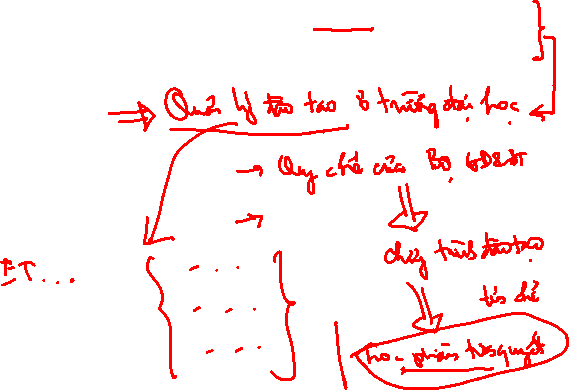 ⇒ Quản lý đào tạo ở trường đại học
→ Quy chế của Bộ GD&ĐT
→
chương trình đào tạo
tín chỉ
... 
...
...
học phần tiên quyết